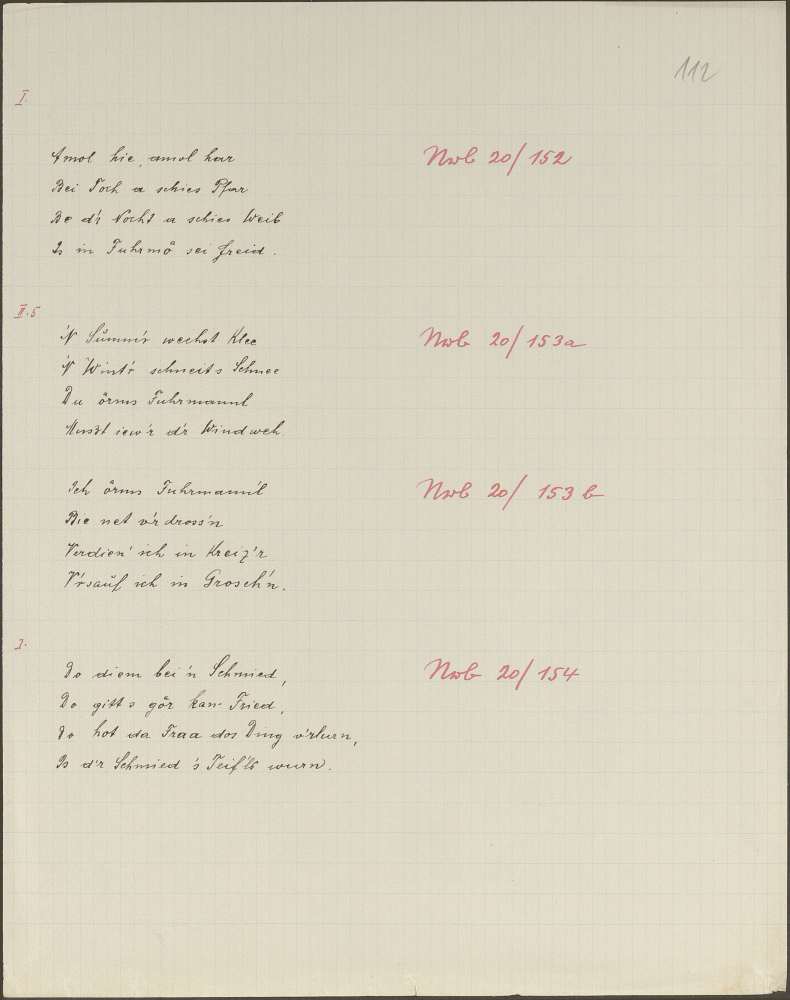 112
I.
Amol hie, amol har
Nwb 20/152
Bei Toch a schies Pfar
Be d'r Nocht a schies Weib
Is in Fuhrmå sei freid.
II.5
'N Summ'r wechst Klee
Nwb 20/153a
'N Wint'r schneits Schnee
Du örms Fuhrmannl
Musst iew'r d'r Windweh.
Ich örms Fuhrmann'l
Nwb 20/153b
Bie net v'rdross'n
Verdien' ich in Kreiz'r
V'rsauf ich in Grosch'n.
I.
Do diem bei'n Schmied,
Nwb 20/154
Do gitt s gör kan Fried,
Do hot da Fraa dos Ding v'rlurn,
Is d'r Schmied 's Teif'ls wurn.